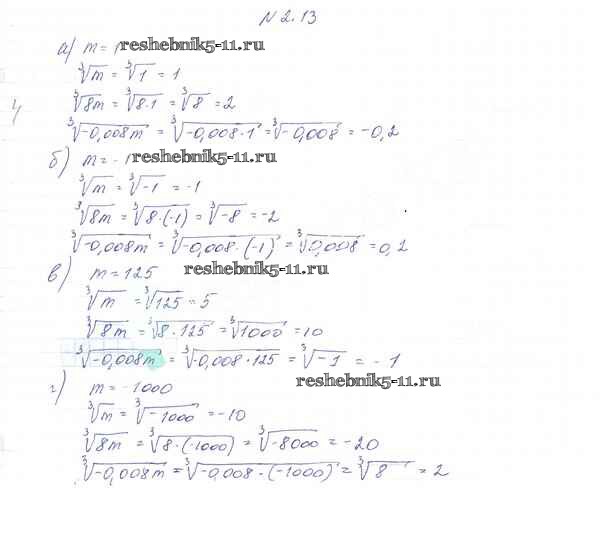 № 2.13
а) m = 1 reshebnik5-11.ru
∛m = ∛1 = 1
∛8m = ∛8·1 = ∛8 = 2
∛-0,008m = ∛-0,008·1 = ∛-0,008 = -0,2
б) m = -1 reshebnik5-11.ru
∛m = ∛-1 = -1
∛8m = ∛8·(-1) = ∛-8 = -2
∛-0,008m = ∛-0,008·(-1) = ∛0,008 = 0,2
в) m = 125 reshebnik5-11.ru
∛m = ∛125 = 5
∛8m = ∛8·125 = ∛1000 = 10
∛-0,008m = ∛-0,008·125 = ∛-1 = -1
reshebnik5-11.ru
г) m = -1000
∛m = ∛-1000 = -10
∛8m = ∛8·(-1000) = ∛-8000 = -20
∛-0,008m = ∛-0,008·(-1000) = ∛8 = 2